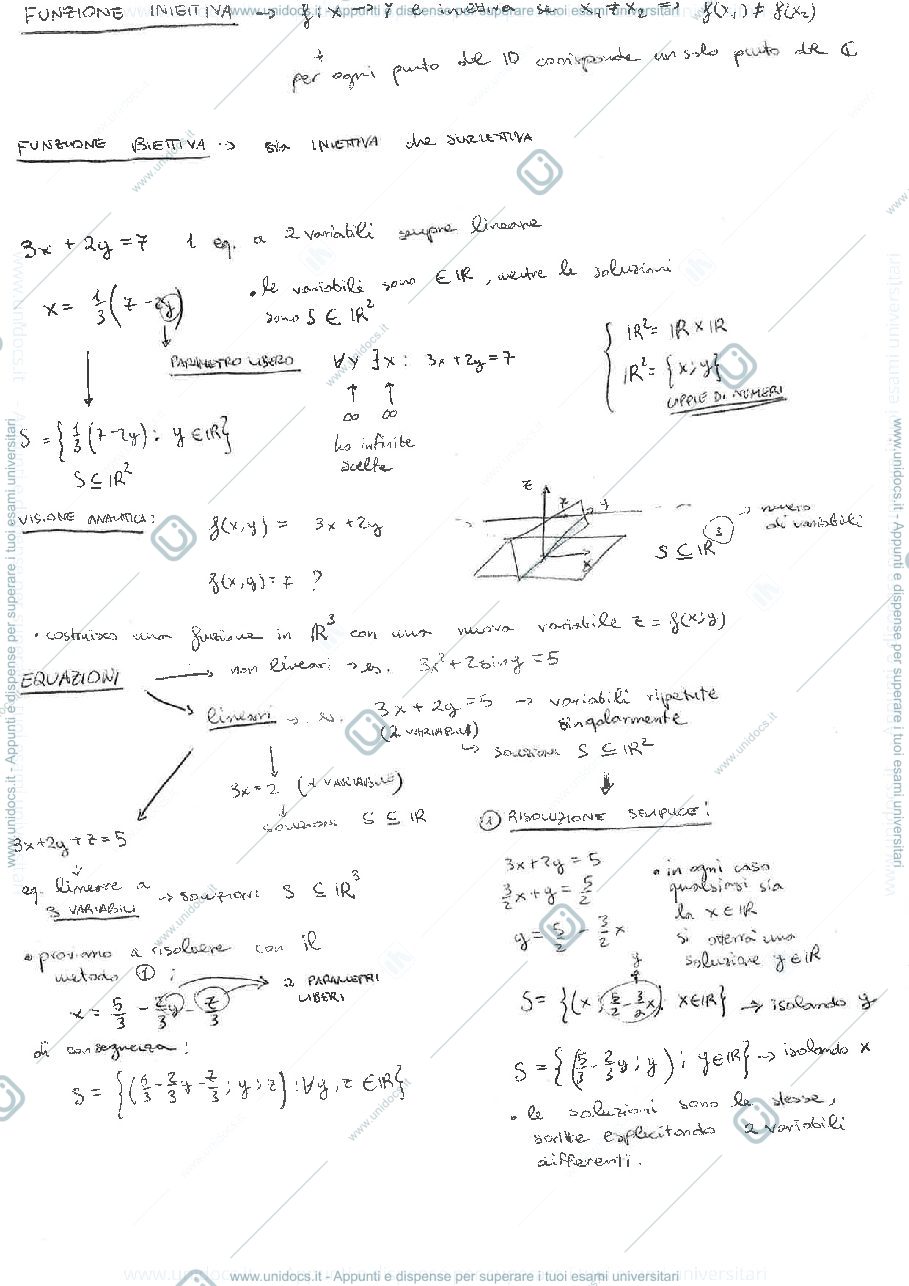 FUNZIONE INIETTIVA → f: x → y è iniettiva se x₁ ≠ x₂ ⇒ f(x₁) ≠ f(x₂)
↓
per ogni punto del D corrisponde un solo punto del C
FUNZIONE BIETTIVA → sia INIETTIVA che SURIETTIVA
3x + 2y = 7 1 eq. a 2 variabili sempre lineare
x = 1/3 (7 - 2y)
• le variabili sono ∈ ℝ, mentre le soluzioni
sono S ∈ ℝ²
PARAMETRO LIBERO
∀y ∃x : 3x + 2y = 7
↑ ↑
∞ ∞
ho infinite
scelte
ℝ² = ℝ x ℝ
ℝ² = {x; y}
COPPIE DI NUMERI
S = {1/3 (7 - 2y) : y ∈ ℝ}
S ⊆ ℝ²
VISIONE ANALITICA:
f(x, y) = 3x + 2y
f(x, y) = 7 ?
z
x
S ⊆ ℝ³ → numero
di variabili
• costruisco una funzione in ℝ³ con una nuova variabile z = f(x; y)
EQUAZIONI
→ non lineari → es. 3x² + 2siny = 5
→ lineari → es. 3x + 2y = 5 → variabili ripetute
(2 VARIABILI) singolarmente
→ SOLUZIONI S ⊆ ℝ²
3x = 2 (1 VARIABILE)
↓
SOLUZIONI S ⊆ ℝ
3x + 2y + z = 5
↓
eq. lineare a
3 VARIABILI
→ soluzioni S ⊆ ℝ³
• proviamo a risolvere con il
metodo ① :
x = 5/3 - 2/3 y - z/3
→ 2 PARAMETRI
LIBERI
di conseguenza:
S = {(5/3 - 2/3 y - z/3 ; y ; z) : ∀y, z ∈ ℝ}
① RISOLUZIONE SEMPLICE:
3x + 2y = 5
3/2 x + y = 5/2
y = 5/2 - 3/2 x
• in ogni caso
qualsiasi sia
la x ∈ ℝ
si otterrà una
soluzione y ∈ ℝ
y
S = {(x ; 5/2 - 3/2 x) : x ∈ ℝ} → isolando y
S = {(5/3 - 2/3 y ; y) ; y ∈ ℝ} → isolando x
• le soluzioni sono le stesse,
scritte esplicitando 2 variabili
differenti.
www.unidocs.it - Appunti e dispense per superare i tuoi esami universitari